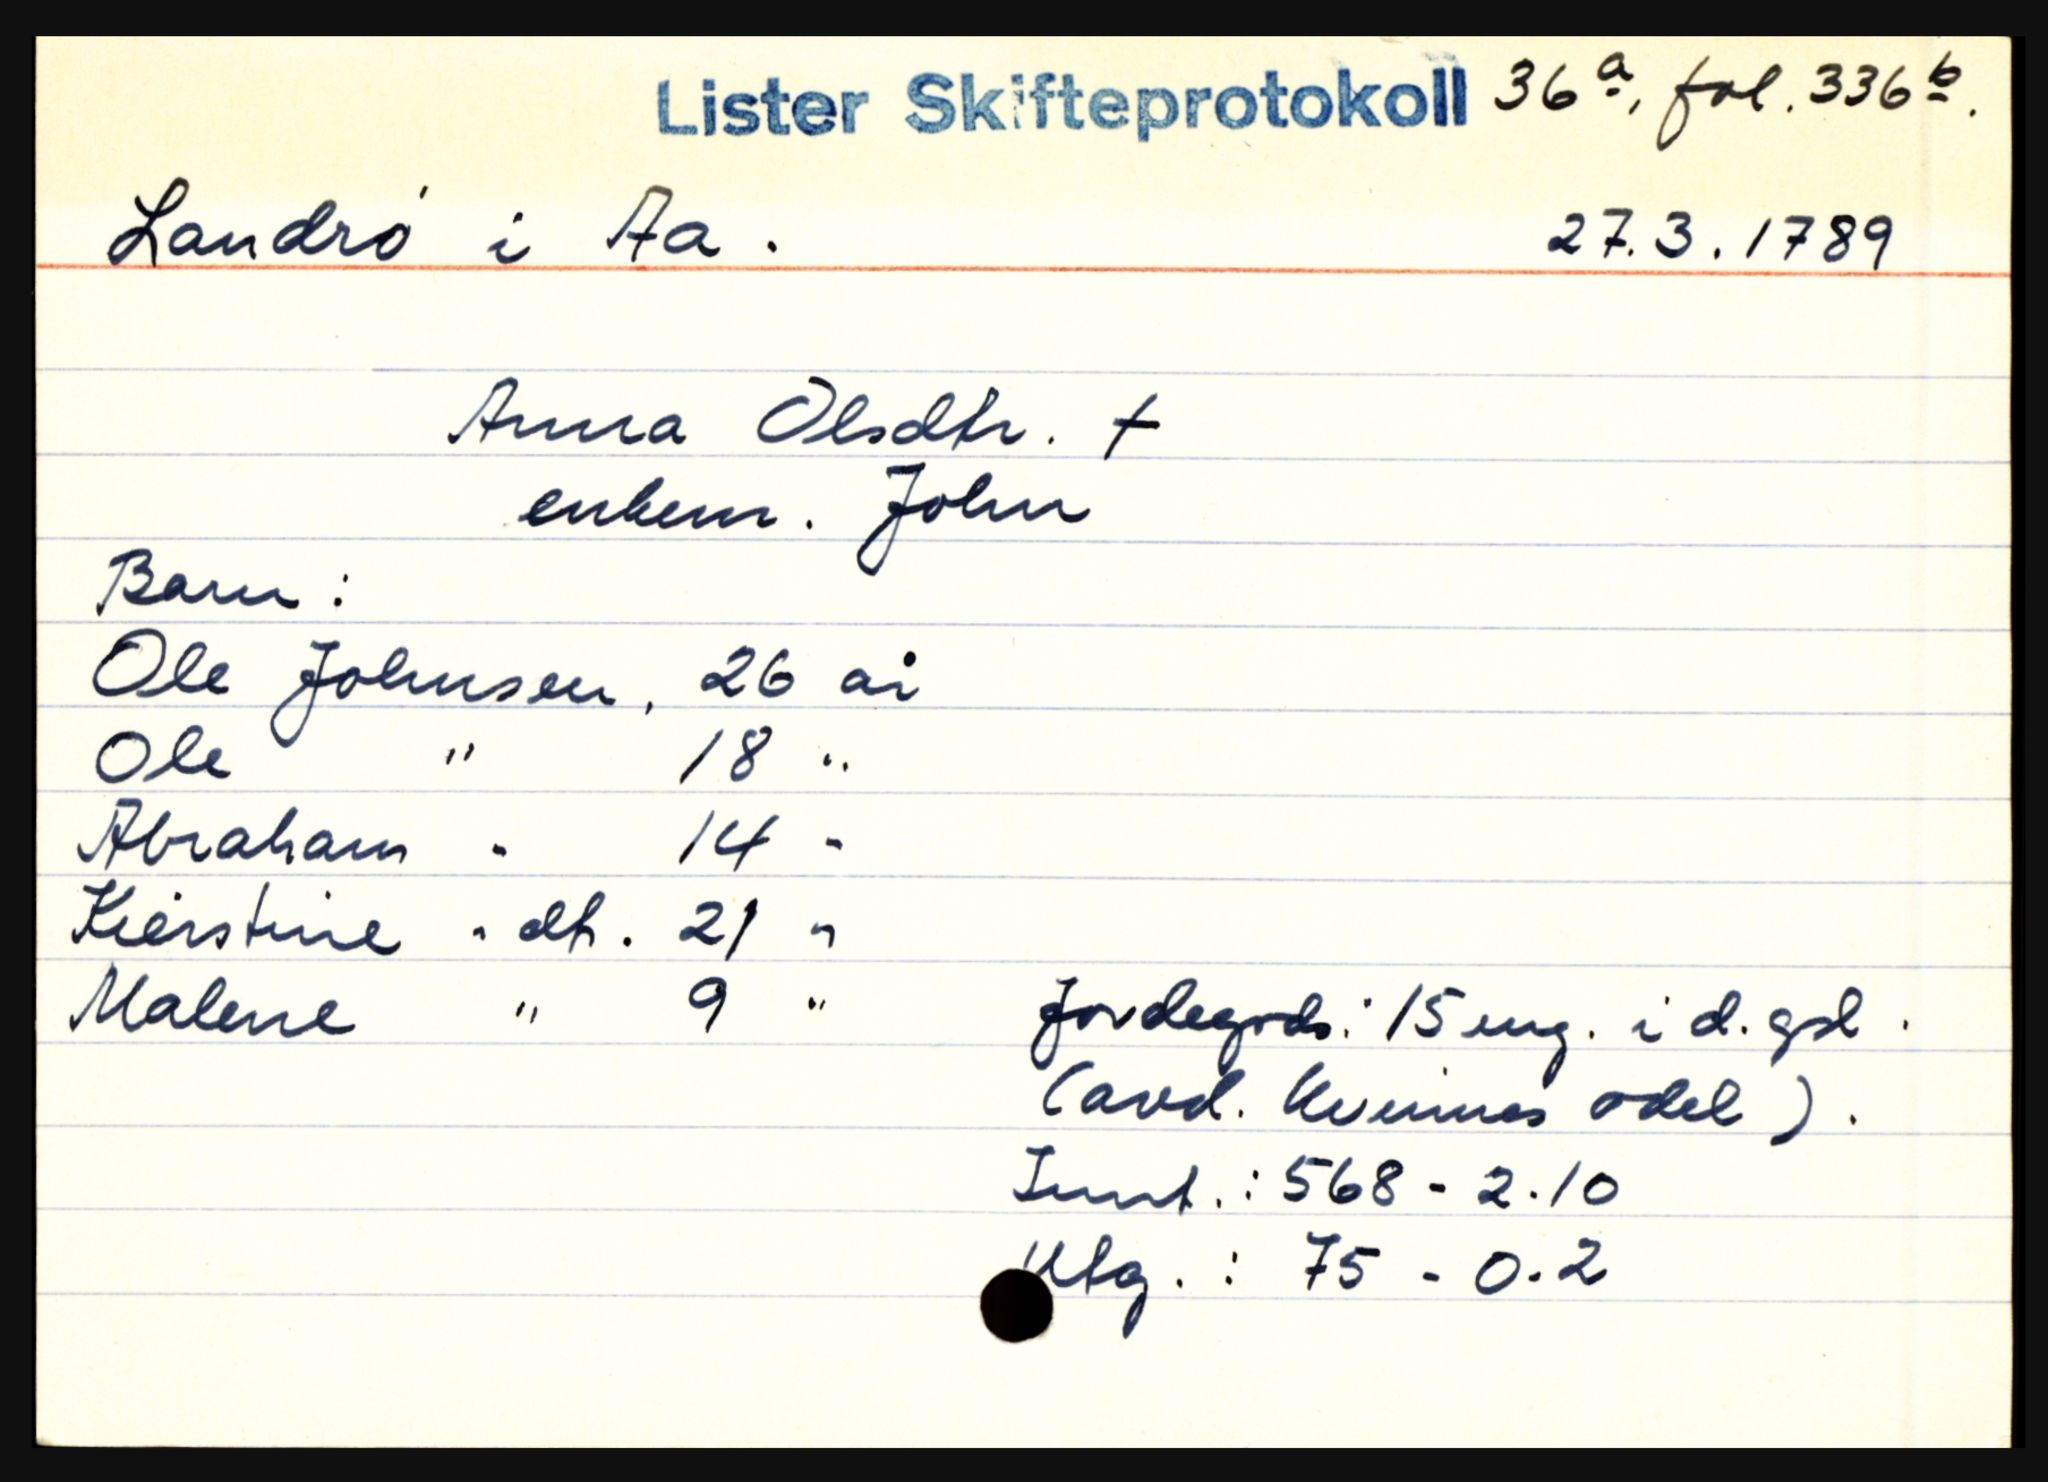 Lister Skifteprotokoll 36a, fol. 336b.
Landrö i Aa. 27.3.1789
Anna Olsdtr. †
enkem. John
Barn:
Ole Johnsen, 26 år
Ole " 18 "
Abraham " 14 "
Kierstine " dtr. 21 "
Malene " 9 "
Jordegods: 15 eng. i d. gsl.
(avd. kvinnes odel).
Innt.: 568 - 2.10
Utg.: 75 - 0.2